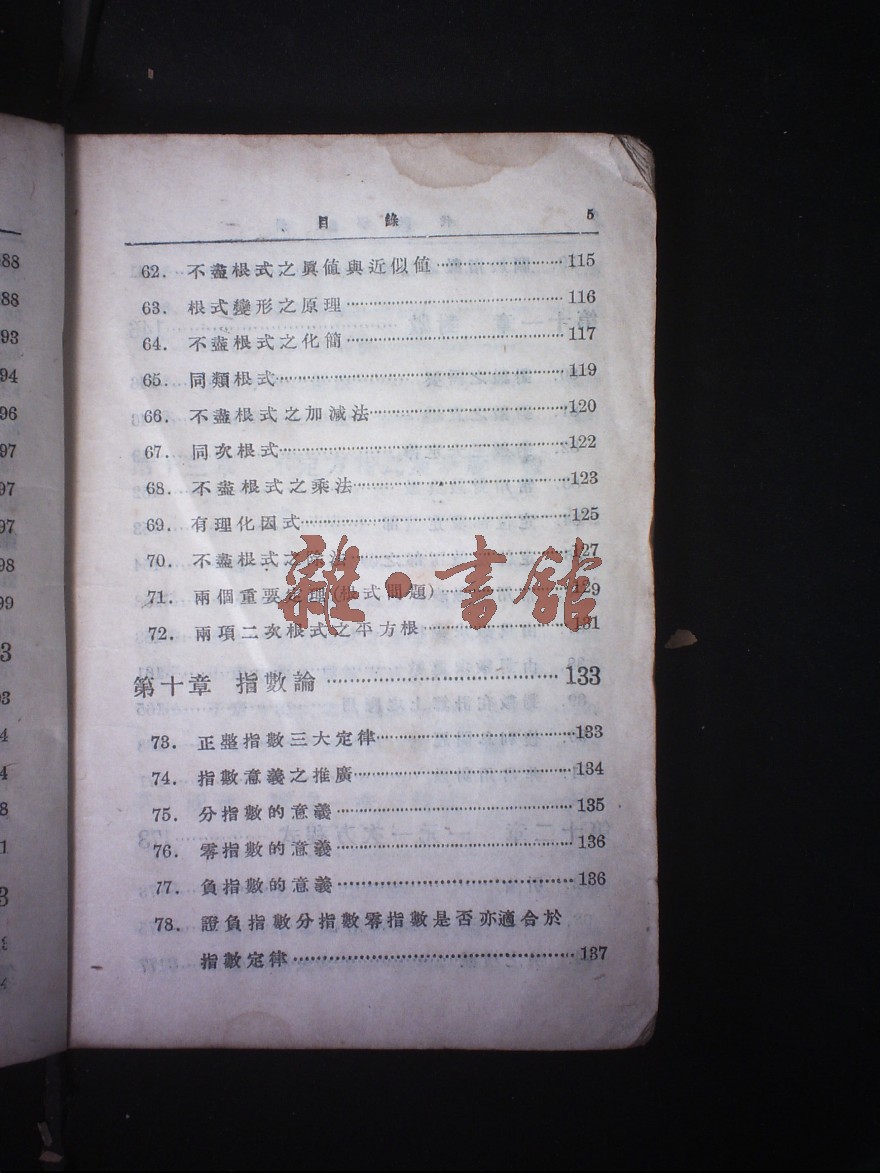 目錄 5
62. 不盡根式之眞値與近似値 115
63. 根式變形之原理 116
64. 不盡根式之化簡 117
65. 同類根式 119
66. 不盡根式之加減法 120
67. 同次根式 122
68. 不盡根式之乘法 123
69. 有理化因式 125
70. 不盡根式之除法 127
71. 兩個重要定理(根式問題) 129
72. 兩項二次根式之平方根 131
第十章 指數論 133
73. 正整指數三大定律 133
74. 指數意義之推廣 134
75. 分指數的意義 135
76. 零指數的意義 136
77. 負指數的意義 136
78. 證負指數分指數零指數是否亦適合於
指數定律 137
雜·書舘